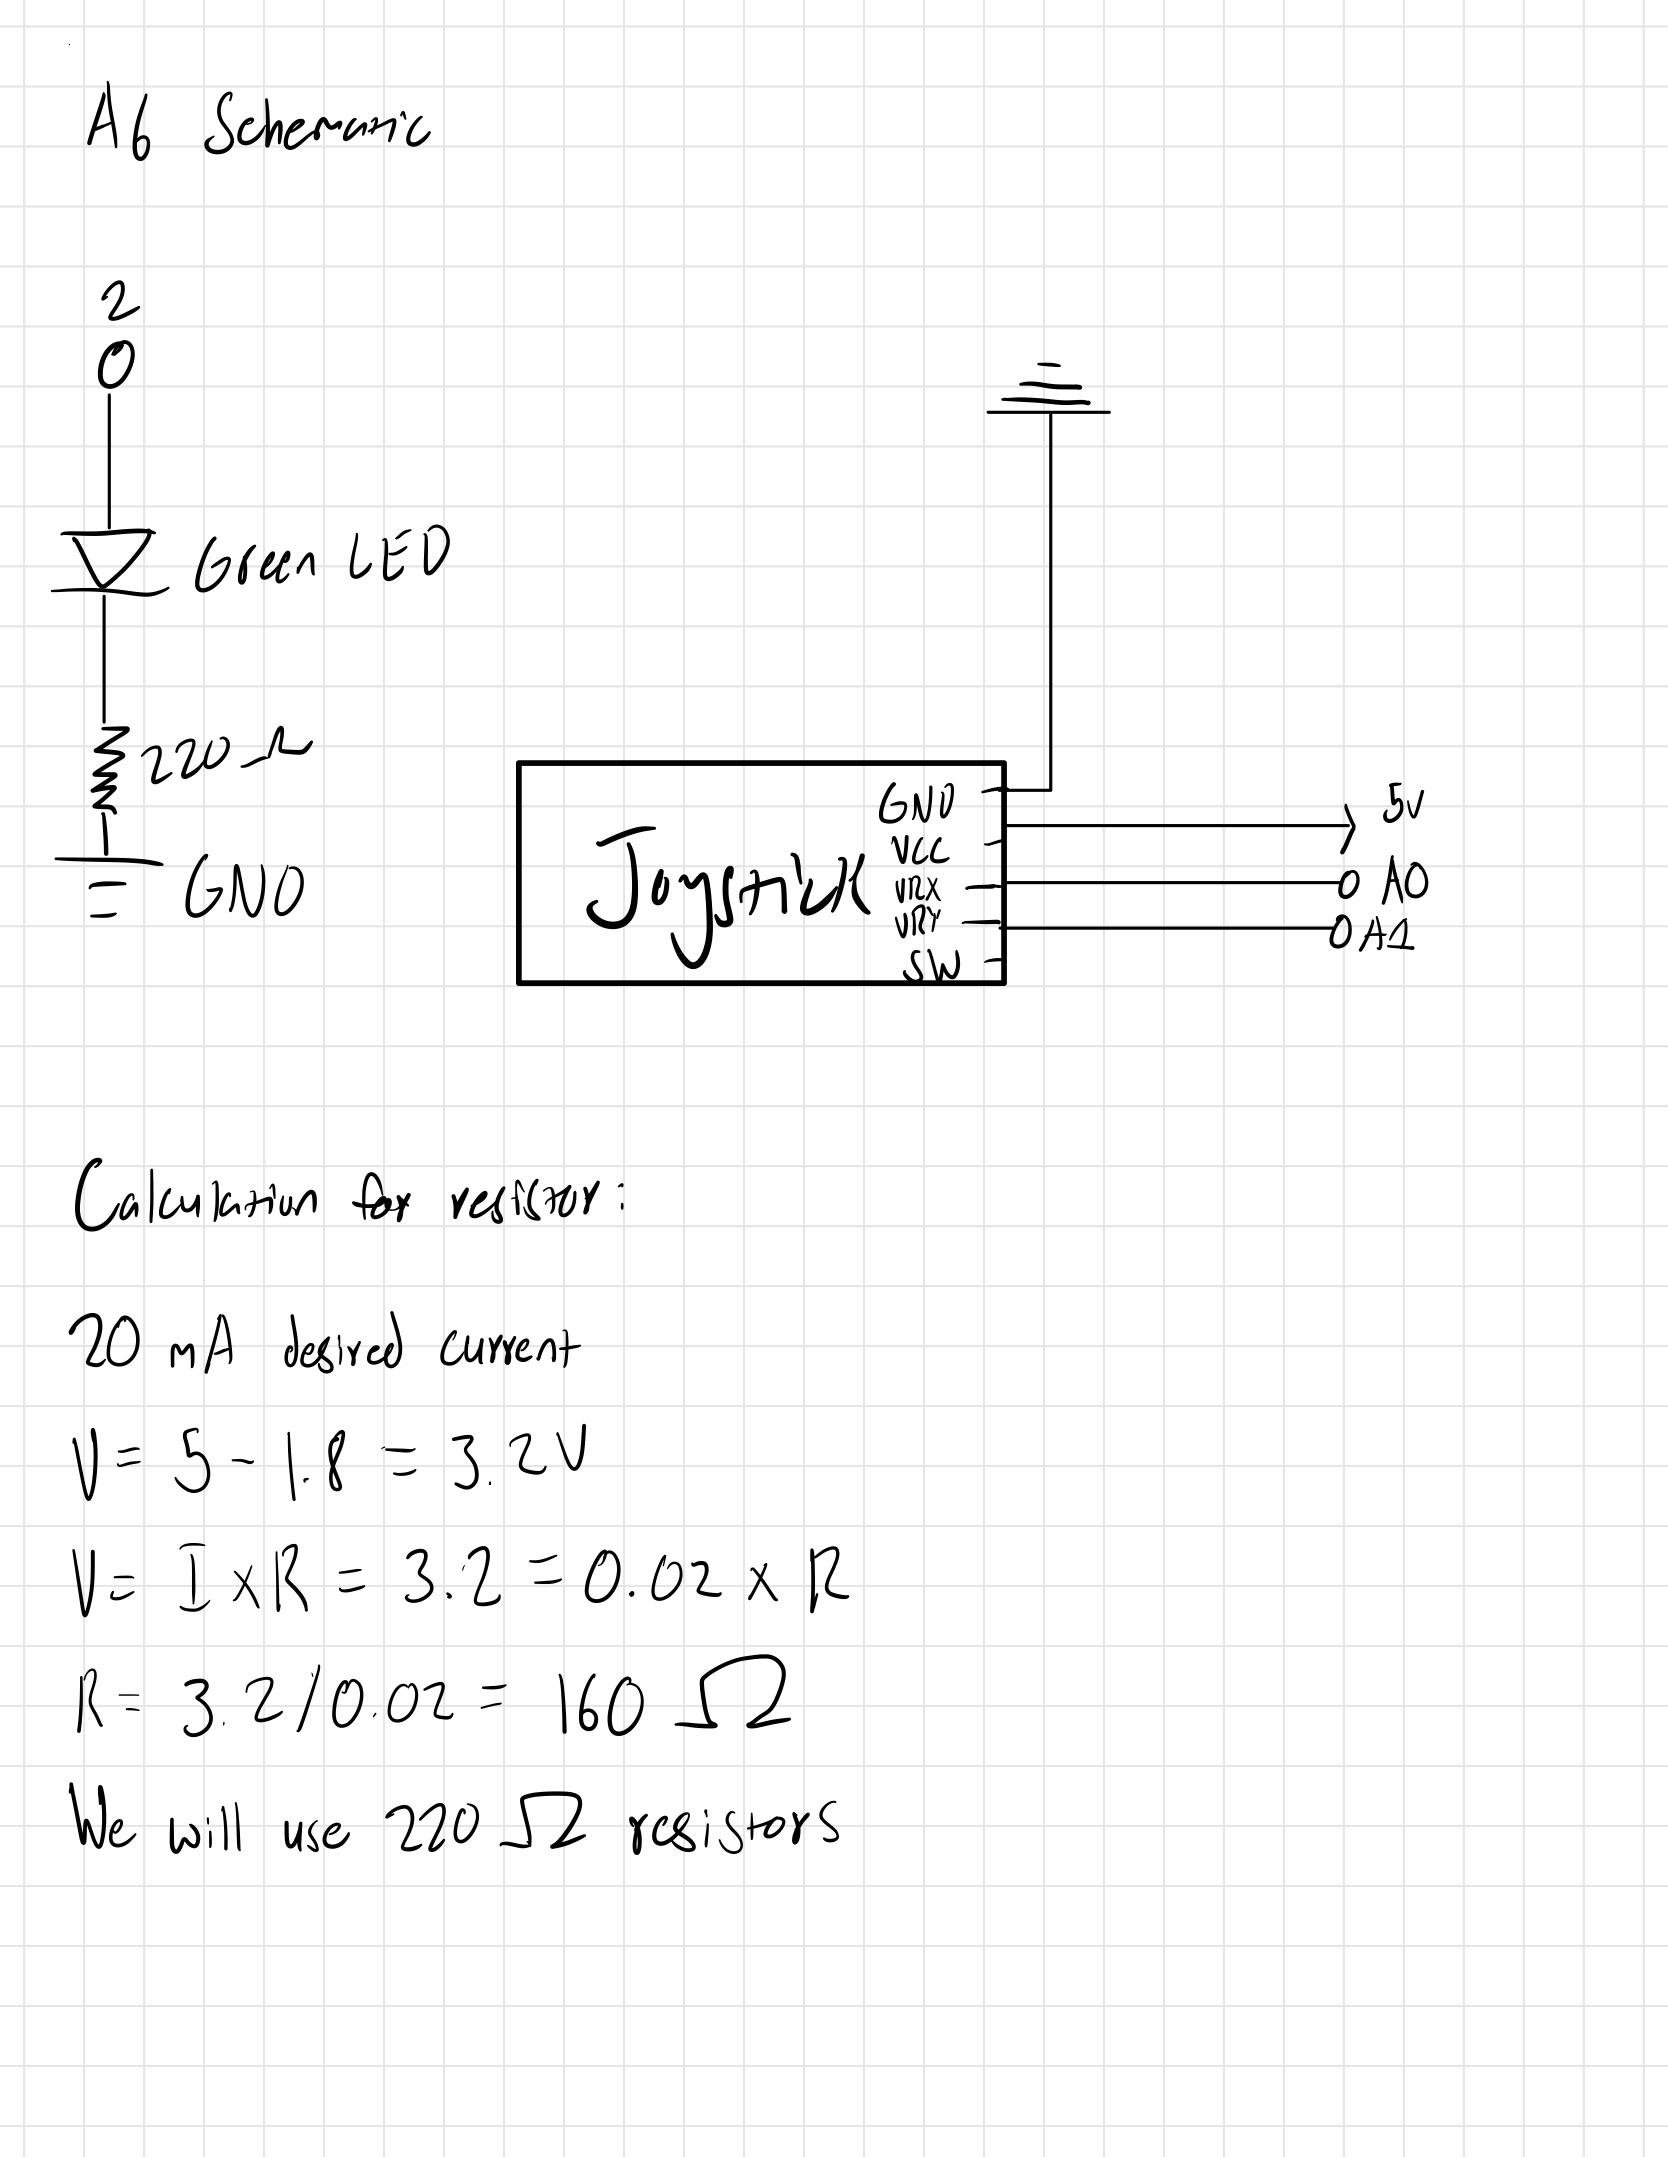 A6 Schematic
2
Green LED
220 Ω
GND
Joystick
GND
VCC
VRX
VRY
SW
5v
A0
A1
Calculation for resistor:
20 mA desired current
V = 5 - 1.8 = 3.2V
V = I x R = 3.2 = 0.02 x R
R = 3.2/0.02 = 160 Ω
We will use 220 Ω resistors